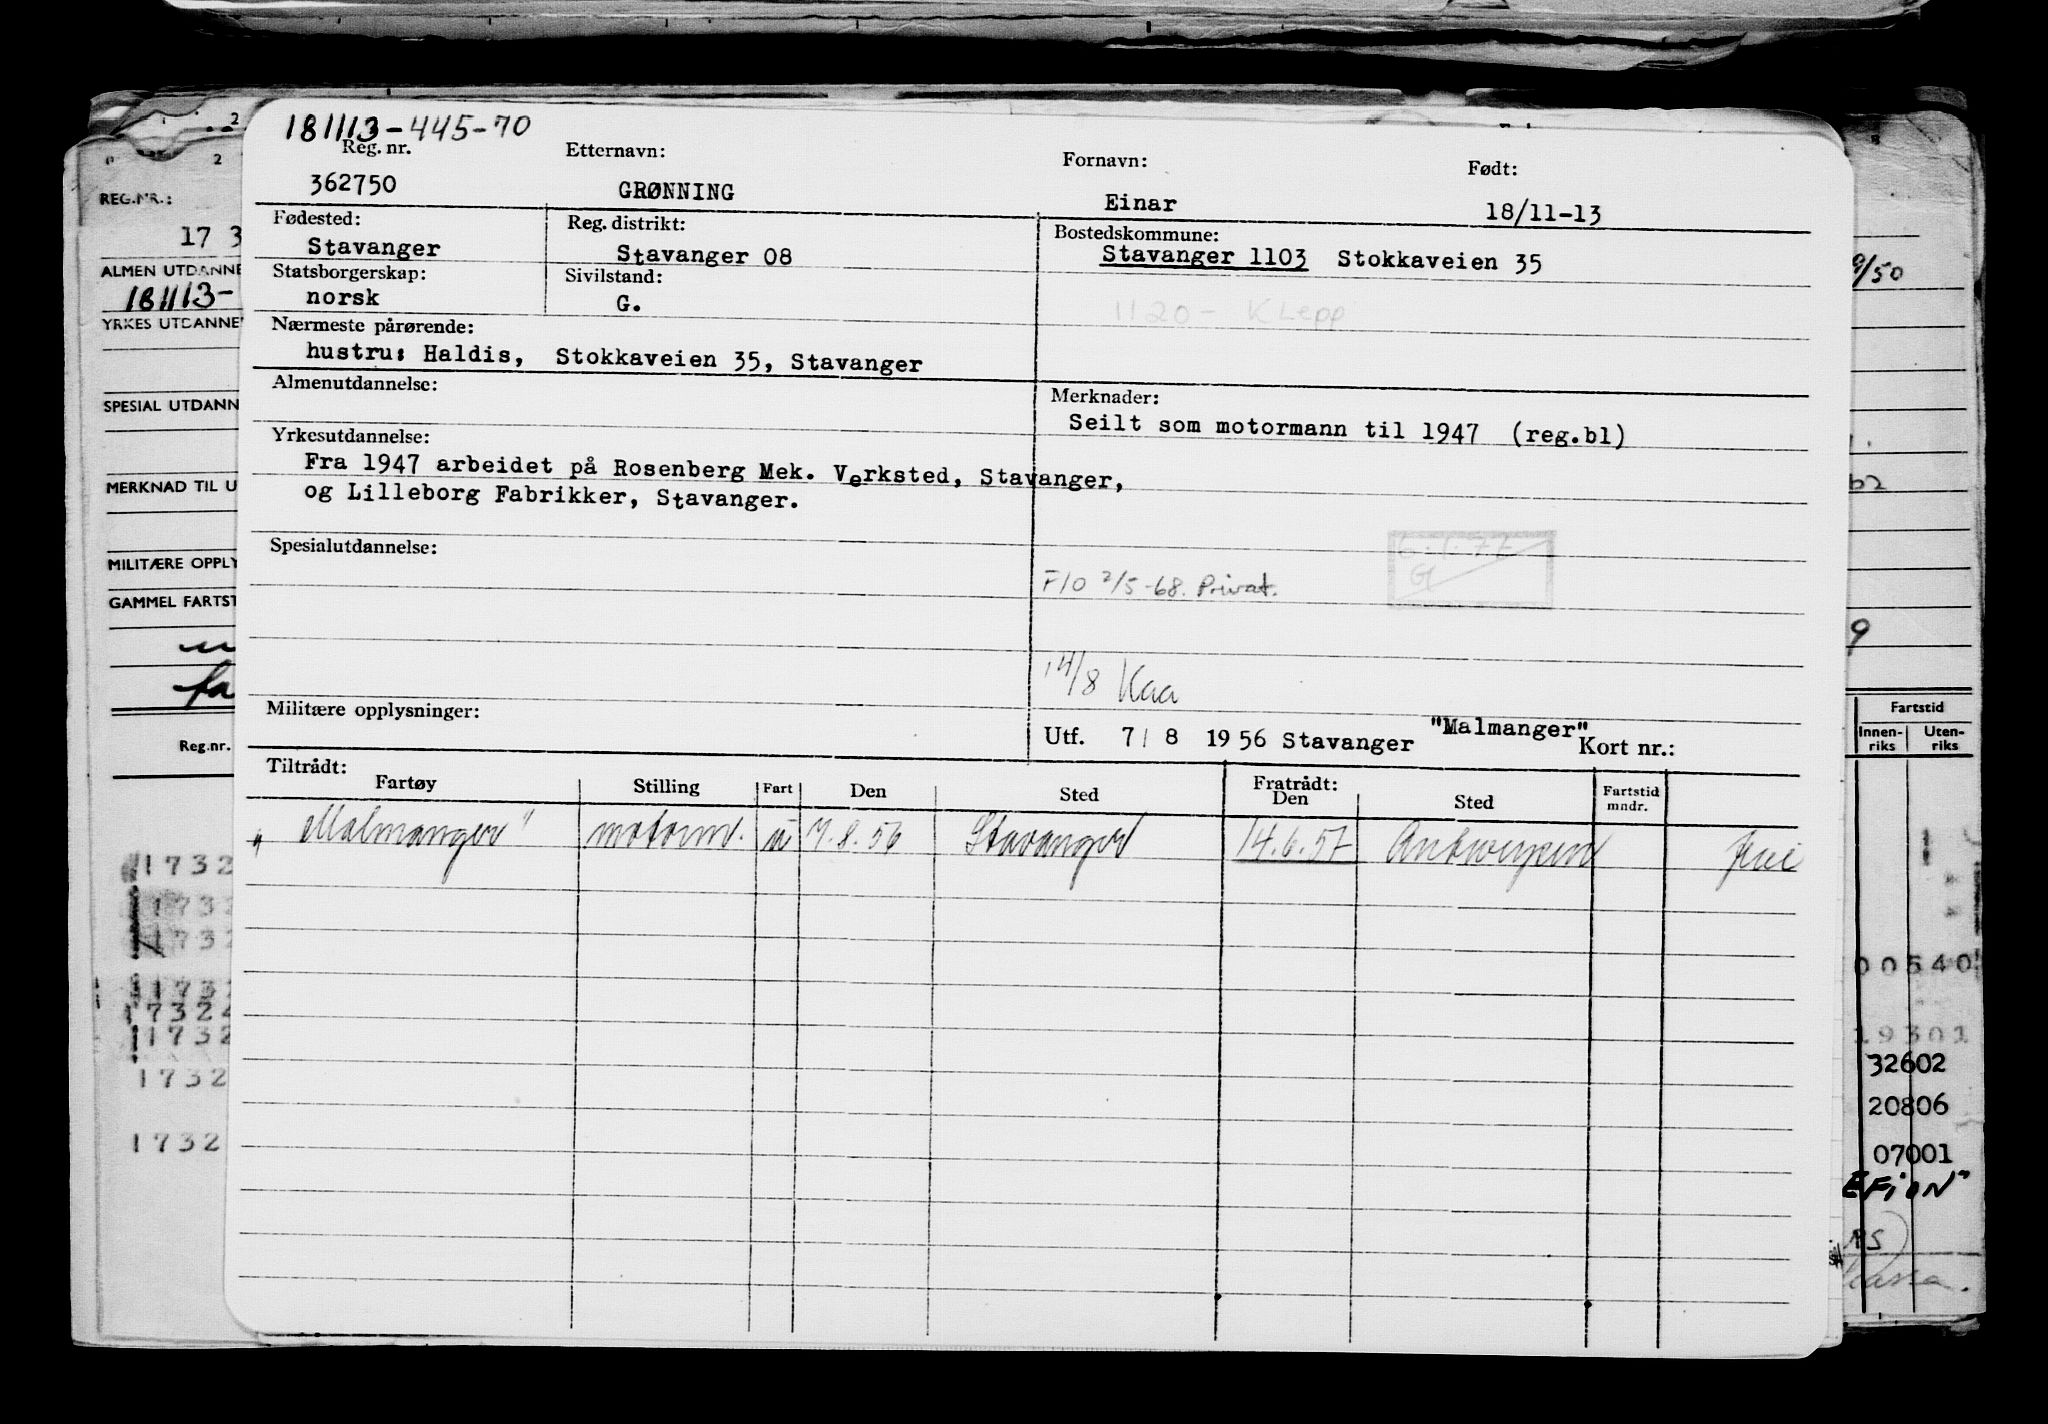 181113-445-70
Reg. nr. Etternavn: Fornavn: Født:
362750 GRØNNING Einar 18/11-13
Fødested: Reg. distrikt: Bostedskommune:
Stavanger Stavanger 08 Stavanger 1103 Stokkaveien 35
Statsborgerskap: Sivilstand:
norsk G.
1120 - Klepp
Nærmeste pårørende:
hustru: Haldis, Stokkaveien 35, Stavanger
Almenutdannelse: Merknader:
Seilt som motormann til 1947 (reg.bl)
Yrkesutdannelse:
Fra 1947 arbeidet på Rosenberg Mek. Verksted, Stavanger,
og Lilleborg Fabrikker, Stavanger.
Spesialutdannelse:
F/O 2/5-68. Privat.
14/8 Kaa
Militære opplysninger:
Utf. 7/8 1956 Stavanger "Malmanger" Kort nr.:
Tiltrådt: Fratrådt:
Fartøy Stilling Fart Den Sted Den Sted Fartstid mndr.
"Malmanger" motorm. u 7.8.56 Stavanger 14.6.57 Antwerpen
REG.NR.:
17 3
ALMEN UTDANNE
181113-
YRKES UTDANNE
SPESIAL UTDANN
MERKNAD TIL U
MILITÆRE OPPLY
GAMMEL FARTST
fa
Reg.nr.
1732
1732
1732
1732
1732
1732
1732
1732
9/50
62
9
Fartstid
Innen-riks Uten-riks
00540
19301
32602
20806
07001
EFION"